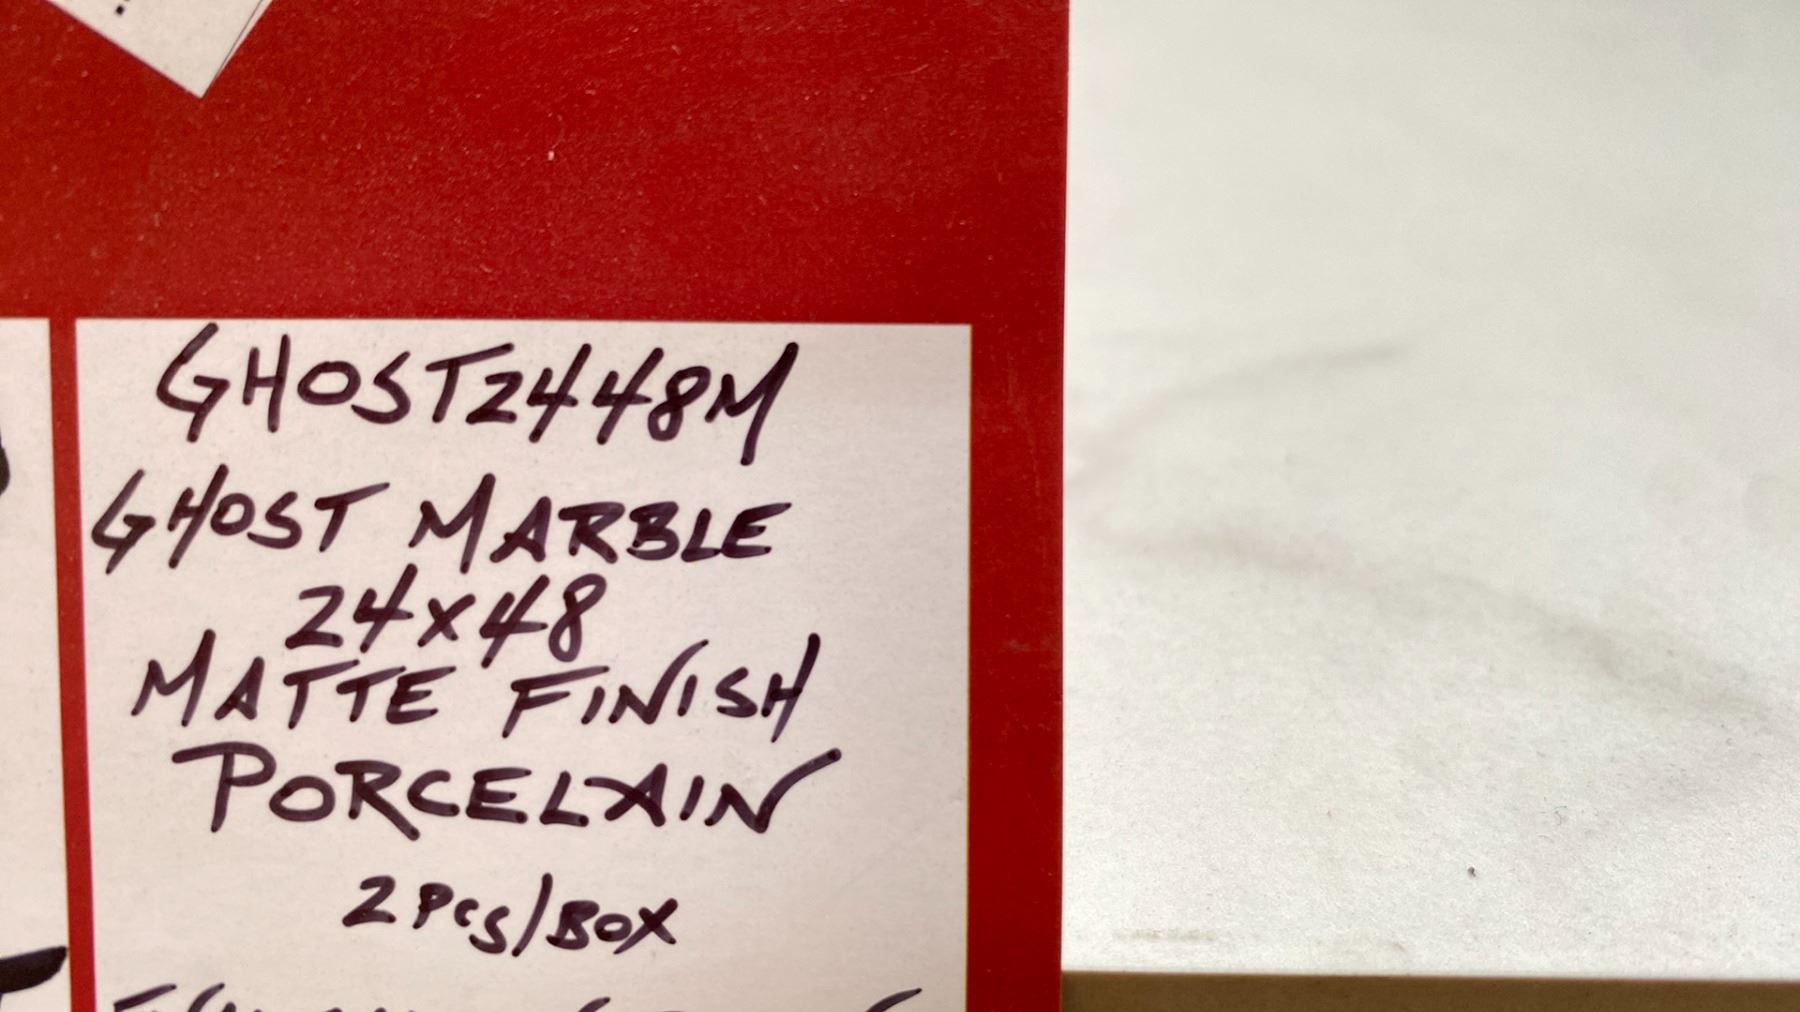 GHOST2448M
GHOST MARBLE
24x48
MATTE FINISH
PORCELAIN
2 PCS/BOX